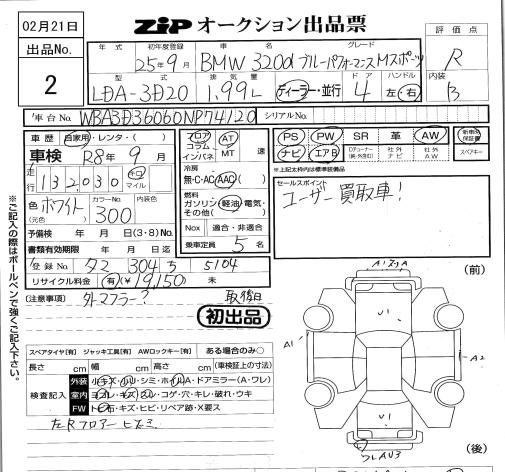 02月21日
ZIP オークション出品票
評価点
R
内装
B
出品No.
2
年式 初年度登録 車名 グレード
25年9月 BMW 320d ブルーパフォーマンス Mスポーツ
型式 排気量 ドア ハンドル
LDA-3D20 1.99L ディーラー・並行 4 左・右
車台No. WBA3D36060NP74120 シリアルNo.
車歴 自家用・レンタ・( )
車検 R8年9月
走行 132,030 キロ マイル
色(元色) ホワイト カラーNo. 300 内装色
予備検 年 月 日(3・8)No.
書類有効期限 年 月 日迄
登録No. 304 5104
リサイクル料金 有(¥19,150) 未
フロア コラム インパネ AT MT 速
冷房
無・C・AC・AAC( )
燃料
ガソリン・軽油・電気・その他( )
Nox 適合・非適合
乗車定員 5名
PS PW SR 革 AW 新車時保証書
ナビ エアB 社外ナビ 社外AW スペアキー
※上記太枠は標準装備品
セールスポイント
ユーザー買取車!
(注意事項) 外マフラー?
初出品
※ご記入の際はボールペンで強くご記入下さい。
スペアタイヤ[有] ジャッキ工具[有] AWロックキー[有] ある場合のみ○
長さ cm 幅 cm 高さ cm (車検証上の寸法)
検査記入
外装 小キズ・凹・シミ・ホイルA・ドアミラー(A・ワレ)
室内 ヨゴレ・キズ・スレ・コゲ・穴・キレ・破れ・ウキ
FW トビ石・キズ・ヒビ・リペア跡・X要ス
左Rフロアー ヒズミ
(前)
U1
A1
A2
U1
(後)